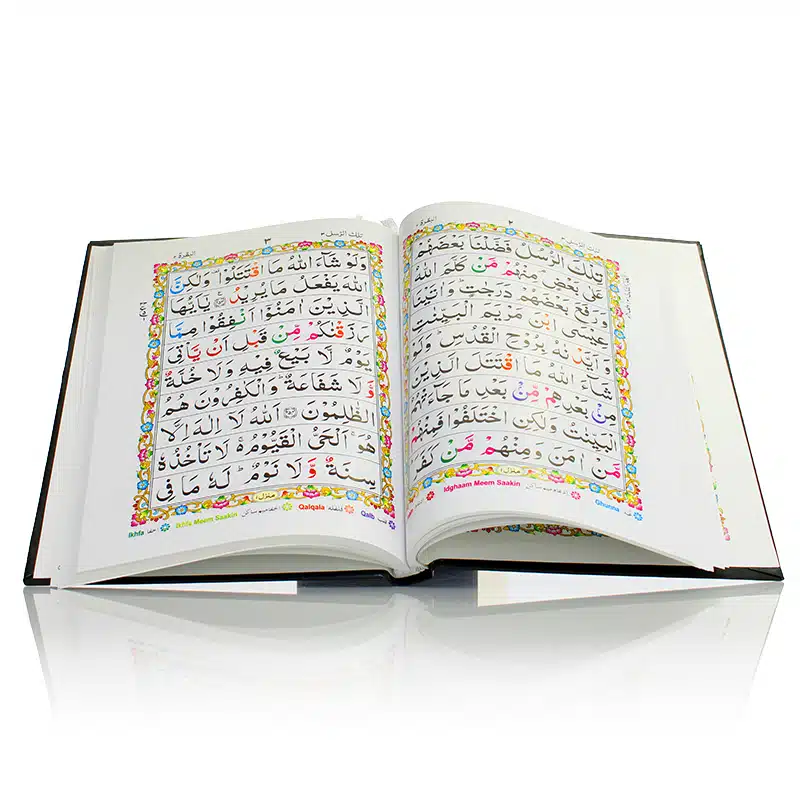 تلك الرسل ٣ ٢ البقرة ٢
تِلْكَ الرُّسُلُ فَضَّلْنَا بَعْضَهُمْ
عَلٰى بَعْضٍ مِنْهُمْ مَّنْ كَلَّمَ اللّٰهُ
وَرَفَعَ بَعْضَهُمْ دَرَجٰتٍ وَاٰتَيْنَا
عِيْسَى ابْنَ مَرْيَمَ الْبَيِّنٰتِ
وَاَيَّدْنٰهُ بِرُوْحِ الْقُدُسِ وَلَوْ
شَآءَ اللّٰهُ مَا اقْتَتَلَ الَّذِيْنَ
مِنْۢ بَعْدِهِمْ مِّنْۢ بَعْدِ مَا جَآءَتْهُمُ
الْبَيِّنٰتُ وَلٰكِنِ اخْتَلَفُوْا فَمِنْهُمْ
مَّنْ اٰمَنَ وَمِنْهُمْ مَّنْ كَفَرَ
منزل ١
Idghaam Meem Saakin ادغام میم ساکن Ghunna غنہ
تلك الرسل ٣ ٣ البقرة ٢
وَلَوْ شَآءَ اللّٰهُ مَا اقْتَتَلُوْا وَلٰكِنَّ
اللّٰهَ يَفْعَلُ مَا يُرِيْدُ يٰٓاَيُّهَا
الَّذِيْنَ اٰمَنُوْٓا اَنْفِقُوْا مِمَّا
رَزَقْنٰكُمْ مِّنْ قَبْلِ اَنْ يَّاْتِيَ
يَوْمٌ لَّا بَيْعٌ فِيْهِ وَلَا خُلَّةٌ
وَّلَا شَفَاعَةٌ وَالْكٰفِرُوْنَ هُمُ
الظّٰلِمُوْنَ اَللّٰهُ لَآ اِلٰهَ اِلَّا
هُوَ اَلْحَيُّ الْقَيُّوْمُ لَا تَاْخُذُهٗ
سِنَةٌ وَّلَا نَوْمٌ لَهٗ مَا فِي
منزل ١
Ikhfa اخفا Ikhfa Meem Saakin اخفا میم ساکن Qalqala قلقلہ Qalb قلب